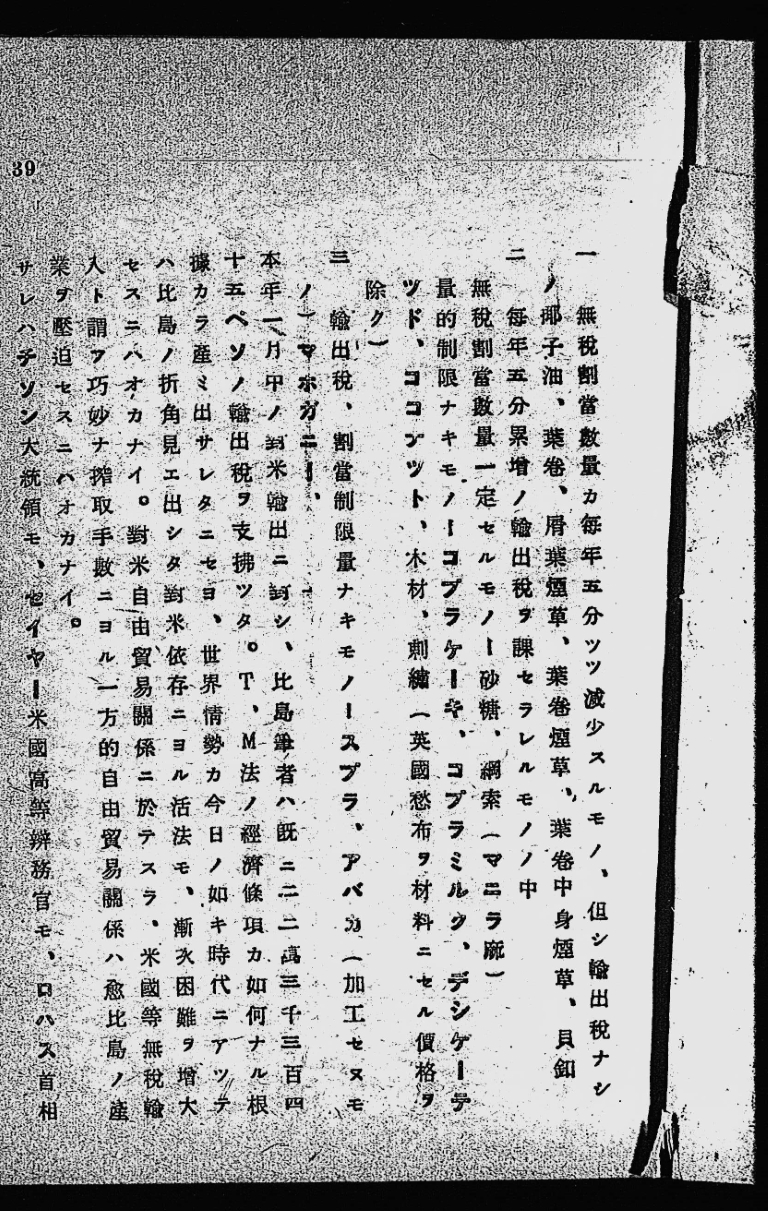 一　無税割當數量カ毎年五分ツツ減少スルモノ、但シ輸出税ナシ
ノ椰子油、葉卷、屑葉煙草、葉卷煙草、葉卷中身煙草、貝釦
二　毎年五分累增ノ輸出税ヲ課セラレルモノノ中
無税割當數量一定セルモノー砂糖、綱索（マニラ麻）
量的制限ナキモノーコプラケーキ、コプラミルク、デシケーテ
ツド、ココナツト、木材、刺繡（英國愁布ヲ材料ニセル價格ヲ
除ク）
三　輸出税、割當制限量ナキモノースプラ、アバカ（加工セヌモ
ノ）マホガニー、
本年一月中ノ對米輸出ニ對シ、比島筆者ハ既ニ二二萬三千三百四
十五ペソノ輸出税ヲ支拂ツタ。T、M法ノ經濟條項カ如何ナル根
據カラ產ミ出サレタニセヨ、世界情勢カ今日ノ如キ時代ニアツテ
ハ比島ノ折角見エ出シタ對米依存ニヨル活法モ、漸次困難ヲ增大
セスニハオカナイ。對米自由貿易關係ニ於テスラ、米國等無税輸
入ト謂フ巧妙ナ搾取手數ニヨル一方的自由貿易關係ハ愈比島ノ產
業ヲ壓迫セスニハオカナイ。
サレハチソン大統領モ、セイヤー米國高等辨務官モ、ロハス首相
39